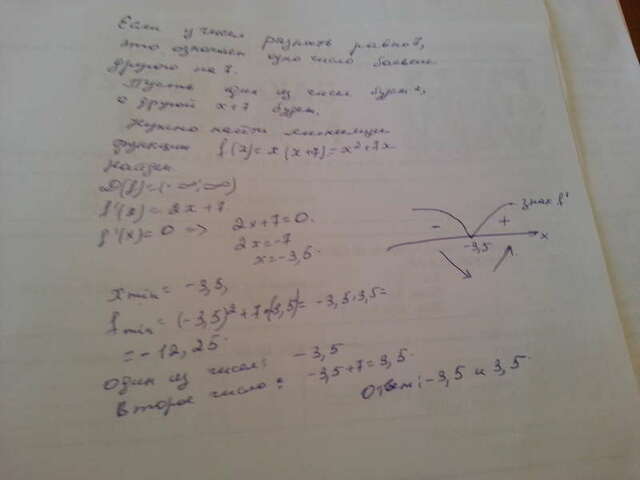 Если у чисел разность равна 7,
это означает одно число больше
другого на 7.
Пусть один из чисел будет x,
а другой x+7 будет.
Нужно найти минимум
функции f(x)=x(x+7)=x²+7x
Найдем
D(f)=(-∞;∞)
f'(x)=2x+7
f'(x)=0 => 2x+7=0.
2x=-7
x=-3,5.
знак f'
- +
-3,5 x
xmin= -3,5,
fmin= (-3,5)²+7·(-3,5)= -3,5·3,5=
=-12,25.
Один из чисел: -3,5
Второе число: -3,5+7=3,5.
Ответ: -3,5 и 3,5.